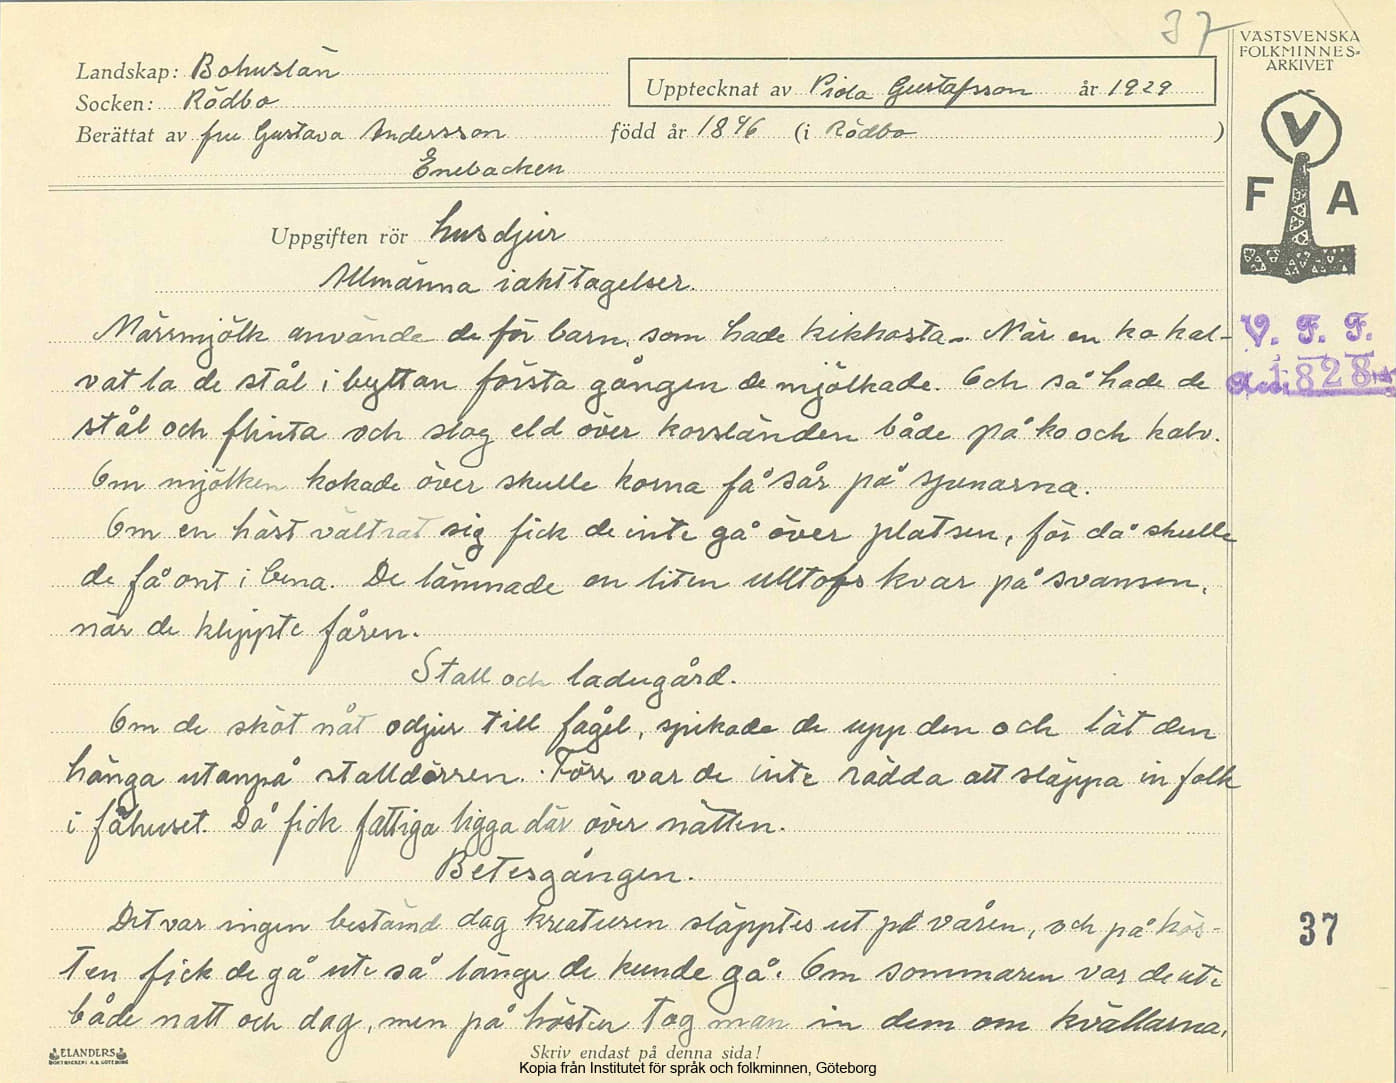 37
VÄSTSVENSKA
FOLKMINNES-
ARKIVET
Landskap: Bohuslän
Upptecknat av Piola Gustafsson år 1929
Socken: Rödbo
Berättat av fru Gustava Andersson född år 1846 (i Rödbo )
Enebacken
V
F A
Uppgiften rör husdjur
Allmänna iakttagelser.
Märrmjölk använde de för barn, som hade kikhosta. När en ko kal-
V. F. F.
vat la de stål i byttan första gången de mjölkade. Och så hade de
1828
stål och flinta och slog eld över korsländen både på ko och kalv.
Om mjölken kokade över skulle korna få sår på spenarna.
Om en häst vältrat sig fick de inte gå över platsen, för då skulle
de få ont i bena. De lämnade en liten ulltofs kvar på svansen,
när de klippte fåren.
Stall och ladugård.
Om de sköt nåt odjur till fågel, spikade de upp den och lät den
hänga utanpå stalldörren. Förr var de inte rädda att släppa in folk
i fähuset. Då fick fattiga ligga där över natten.
Betesgången.
Det var ingen bestämd dag kreaturen släpptes ut på våren, och på hös-
37
ten fick de gå ute så länge de kunde gå. Om sommaren var de ute
både natt och dag, men på hösten tog man in dem om kvällarna,
ELANDERS
BOKTRYCKERI A.B. GÖTEBORG
Skriv endast på denna sida!
Kopia från Institutet för språk och folkminnen, Göteborg